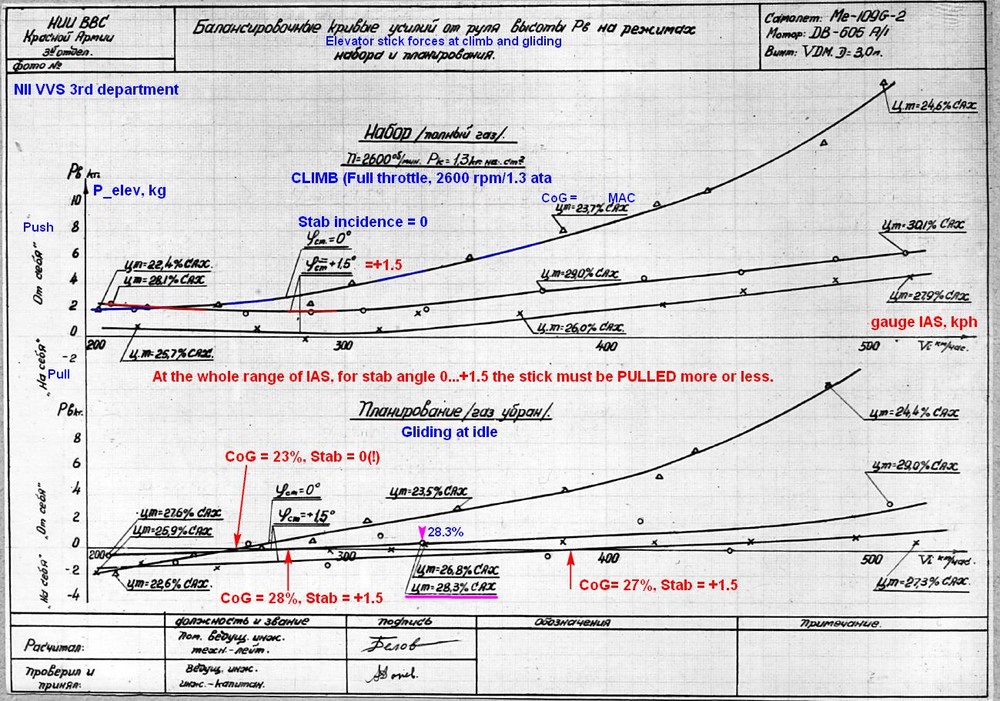 НИИ ВВС
Красной Армии
3й отдел.
фото №
Балансировочные кривые усилий от руля высоты Рв на режимах
Elevator stick forces at climb and gliding
набора и планирования.
Самолет: Me-109G-2
Мотор: DB-605 A/1
Винт: VDM. D=3,0м.
NII VVS 3rd department
Набор /полный газ/.
n=2600 об/мин. Рк=1,3 кг на. см²
CLIMB (Full throttle, 2600 rpm/1.3 ata
Ц.т=24,6% САХ
Рв кг.
P_elev, kg
10
8
6
4
2
0
-2
Push
"От себя"
Pull
"На себя"
CoG = MAC
Ц.т=23,7% САХ
Stab incidence = 0
φст=0°
φст=+1,5°
=+1.5
Ц.т=22,4% САХ.
Ц.т=28,1% САХ.
Ц.т=30,1% САХ
Ц.т=29,0% САХ.
Ц.т=27,9% САХ
Ц.т=26,0% САХ.
Ц.т=25,7% САХ
gauge IAS, kph
200
300
400
500
Vi км/час.
At the whole range of IAS, for stab angle 0...+1.5 the stick must be PULLED more or less.
Рв кг.
Планирование /газ убран/.
Gliding at idle
Ц.т=24,4% САХ
8
6
4
2
0
-2
-4
"От себя"
"На себя"
CoG = 23%, Stab = 0(!)
φст=0°
φст=+1,5°
Ц.т=23,5% САХ
Ц.т=29,0% САХ
Ц.т=27,6% САХ
Ц.т=25,9% САХ
28.3%
200
300
400
500
Vi км/час.
Ц.т=26,8% САХ
Ц.т=28,3% САХ
Ц.т=22,6% САХ
Ц.т=27,3% САХ
CoG = 28%, Stab = +1.5
CoG = 27%, Stab = +1.5
должность и звание
подпись
Обозначения
Примечание.
Расчитал:
Пом. ведущ. инж.
техн.-лейт.
Белов
Проверил и
принял:
Ведущ. инж.
инж.-капитан.